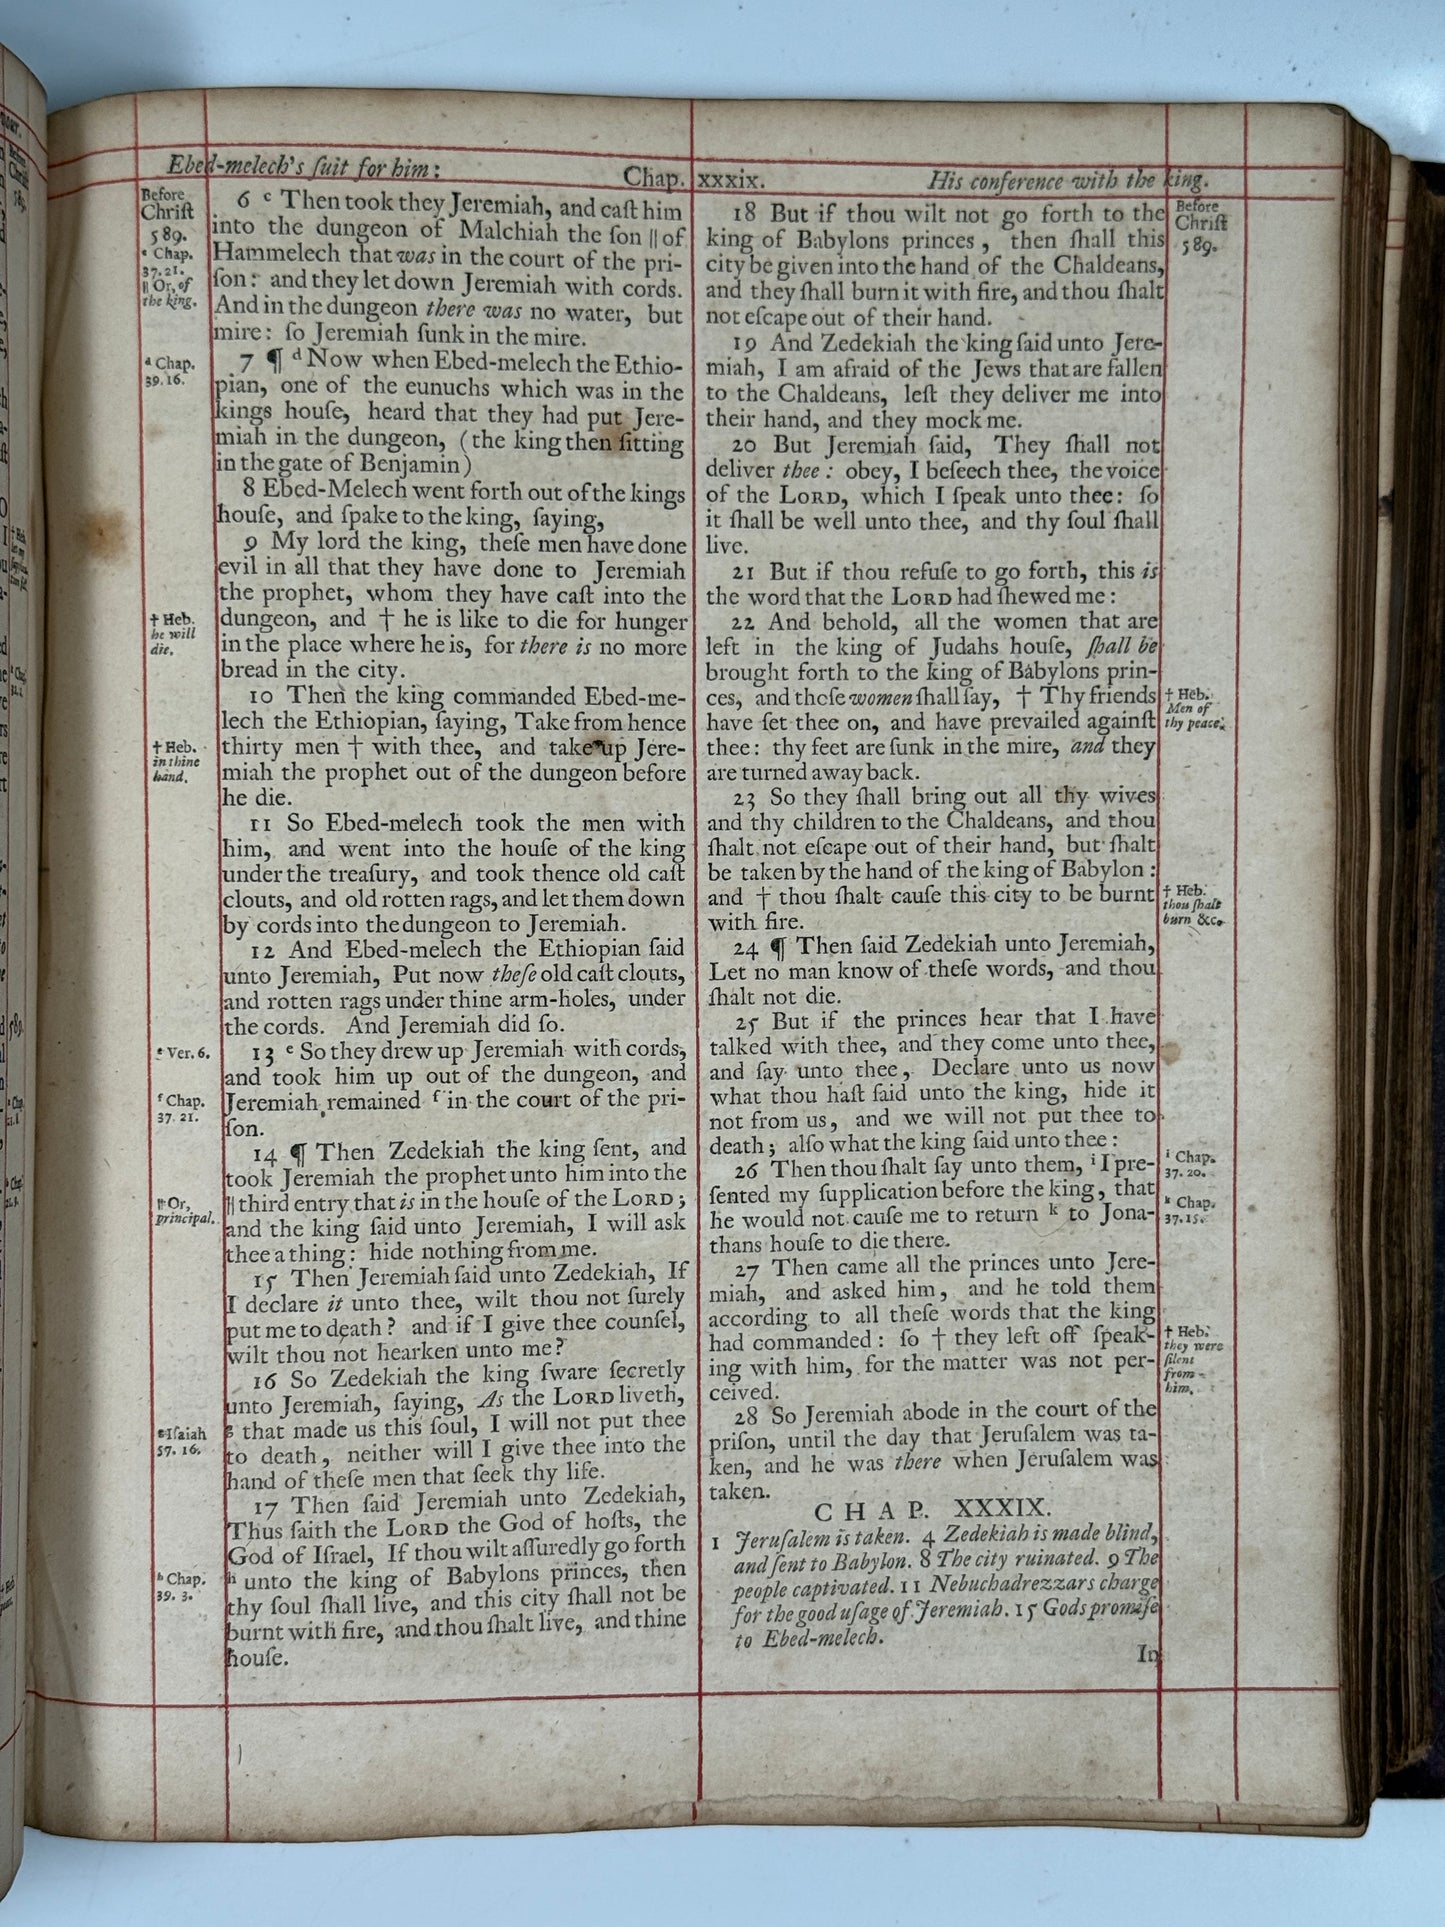 Ebed-melech's ſuit for him:
Chap. xxxix.
His conference with the king.
Before
Chriſt
589.
ᶜ Chap.
37.21.
|| Or, of
the king.
ᵈ Chap.
39.16.
† Heb.
he will
die.
† Heb.
in thine
hand.
ᵉ Ver. 6.
ᶠ Chap.
37. 21.
|| Or,
principal.
ᵍ Iſaiah
57. 16.
ʰ Chap.
39. 3.
6 ᶜ Then took they Jeremiah, and caſt him
into the dungeon of Malchiah the ſon || of
Hammelech that was in the court of the pri-
ſon: and they let down Jeremiah with cords.
And in the dungeon there was no water, but
mire: ſo Jeremiah ſunk in the mire.
7 ¶ ᵈ Now when Ebed-melech the Ethio-
pian, one of the eunuchs which was in the
kings houſe, heard that they had put Jere-
miah in the dungeon, (the king then ſitting
in the gate of Benjamin)
8 Ebed-Melech went forth out of the kings
houſe, and ſpake to the king, ſaying,
9 My lord the king, theſe men have done
evil in all that they have done to Jeremiah
the prophet, whom they have caſt into the
dungeon, and † he is like to die for hunger
in the place where he is, for there is no more
bread in the city.
10 Then the king commanded Ebed-me-
lech the Ethiopian, ſaying, Take from hence
thirty men † with thee, and take up Jere-
miah the prophet out of the dungeon before
he die.
11 So Ebed-melech took the men with
him, and went into the houſe of the king
under the treaſury, and took thence old caſt
clouts, and old rotten rags, and let them down
by cords into the dungeon to Jeremiah.
12 And Ebed-melech the Ethiopian ſaid
unto Jeremiah, Put now theſe old caſt clouts,
and rotten rags under thine arm-holes, under
the cords. And Jeremiah did ſo.
13 ᵉ So they drew up Jeremiah with cords,
and took him up out of the dungeon, and
Jeremiah remained ᶠ in the court of the pri-
ſon.
14 ¶ Then Zedekiah the king ſent, and
took Jeremiah the prophet unto him into the
|| third entry that is in the houſe of the LORD;
and the king ſaid unto Jeremiah, I will ask
thee a thing: hide nothing from me.
15 Then Jeremiah ſaid unto Zedekiah, If
I declare it unto thee, wilt thou not ſurely
put me to death? and if I give thee counſel,
wilt thou not hearken unto me?
16 So Zedekiah the king ſware ſecretly
unto Jeremiah, ſaying, As the LORD liveth,
ᵍ that made us this ſoul, I will not put thee
to death, neither will I give thee into the
hand of theſe men that ſeek thy life.
17 Then ſaid Jeremiah unto Zedekiah,
Thus ſaith the LORD the God of hoſts, the
God of Iſrael, If thou wilt aſſuredly go forth
ʰ unto the king of Babylons princes, then
thy ſoul ſhall live, and this city ſhall not be
burnt with fire, and thou ſhalt live, and thine
houſe.
18 But if thou wilt not go forth to the
king of Babylons princes, then ſhall this
city be given into the hand of the Chaldeans,
and they ſhall burn it with fire, and thou ſhalt
not eſcape out of their hand.
19 And Zedekiah the king ſaid unto Jere-
miah, I am afraid of the Jews that are fallen
to the Chaldeans, leſt they deliver me into
their hand, and they mock me.
20 But Jeremiah ſaid, They ſhall not
deliver thee: obey, I beſeech thee, the voice
of the LORD, which I ſpeak unto thee: ſo
it ſhall be well unto thee, and thy ſoul ſhall
live.
21 But if thou refuſe to go forth, this is
the word that the LORD had ſhewed me:
22 And behold, all the women that are
left in the king of Judahs houſe, ſhall be
brought forth to the king of Babylons prin-
ces, and thoſe women ſhall ſay, † Thy friends
have ſet thee on, and have prevailed againſt
thee: thy feet are ſunk in the mire, and they
are turned away back.
23 So they ſhall bring out all thy wives
and thy children to the Chaldeans, and thou
ſhalt not eſcape out of their hand, but ſhalt
be taken by the hand of the king of Babylon:
and † thou ſhalt cauſe this city to be burnt
with fire.
24 ¶ Then ſaid Zedekiah unto Jeremiah,
Let no man know of theſe words, and thou
ſhalt not die.
25 But if the princes hear that I have
talked with thee, and they come unto thee,
and ſay unto thee, Declare unto us now
what thou haſt ſaid unto the king, hide it
not from us, and we will not put thee to
death; alſo what the king ſaid unto thee:
26 Then thou ſhalt ſay unto them, ⁱ I pre-
ſented my ſupplication before the king, that
he would not cauſe me to return ᵏ to Jona-
thans houſe to die there.
27 Then came all the princes unto Jere-
miah, and asked him, and he told them
according to all theſe words that the king
had commanded: ſo † they left off ſpeak-
ing with him, for the matter was not per-
ceived.
28 So Jeremiah abode in the court of the
priſon, until the day that Jeruſalem was ta-
ken, and he was there when Jeruſalem was
taken.
CHAP. XXXIX.
1 Jeruſalem is taken. 4 Zedekiah is made blind,
and ſent to Babylon. 8 The city ruinated. 9 The
people captivated. 11 Nebuchadrezzars charge
for the good uſage of Jeremiah. 15 Gods promiſe
to Ebed-melech.
In
Before
Chriſt
589.
† Heb.
Men of
thy peace.
† Heb.
thou ſhalt
burn &c.
ⁱ Chap.
37. 20.
ᵏ Chap.
37. 15.
† Heb.
they were
ſilent
from
him.